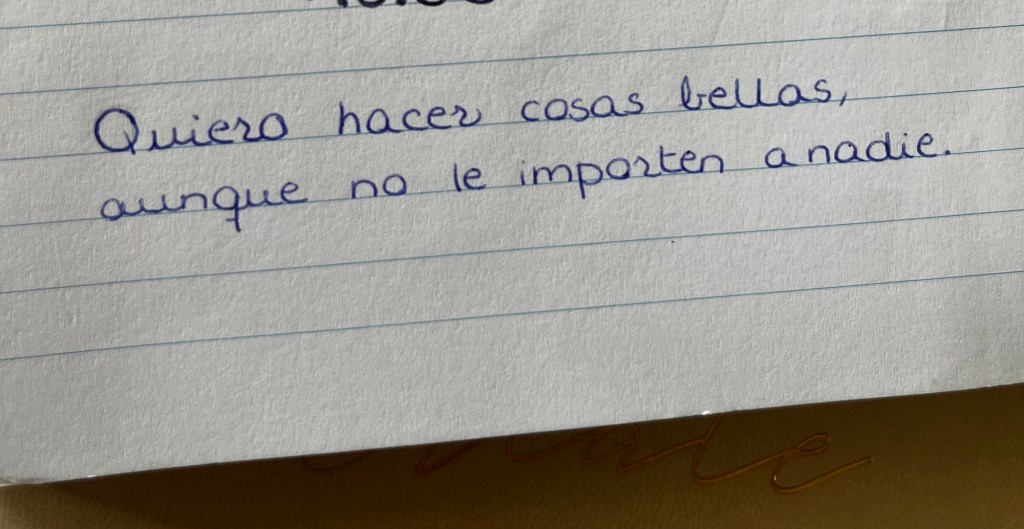 Quiero hacer cosas bellas,
aunque no le importen a nadie.